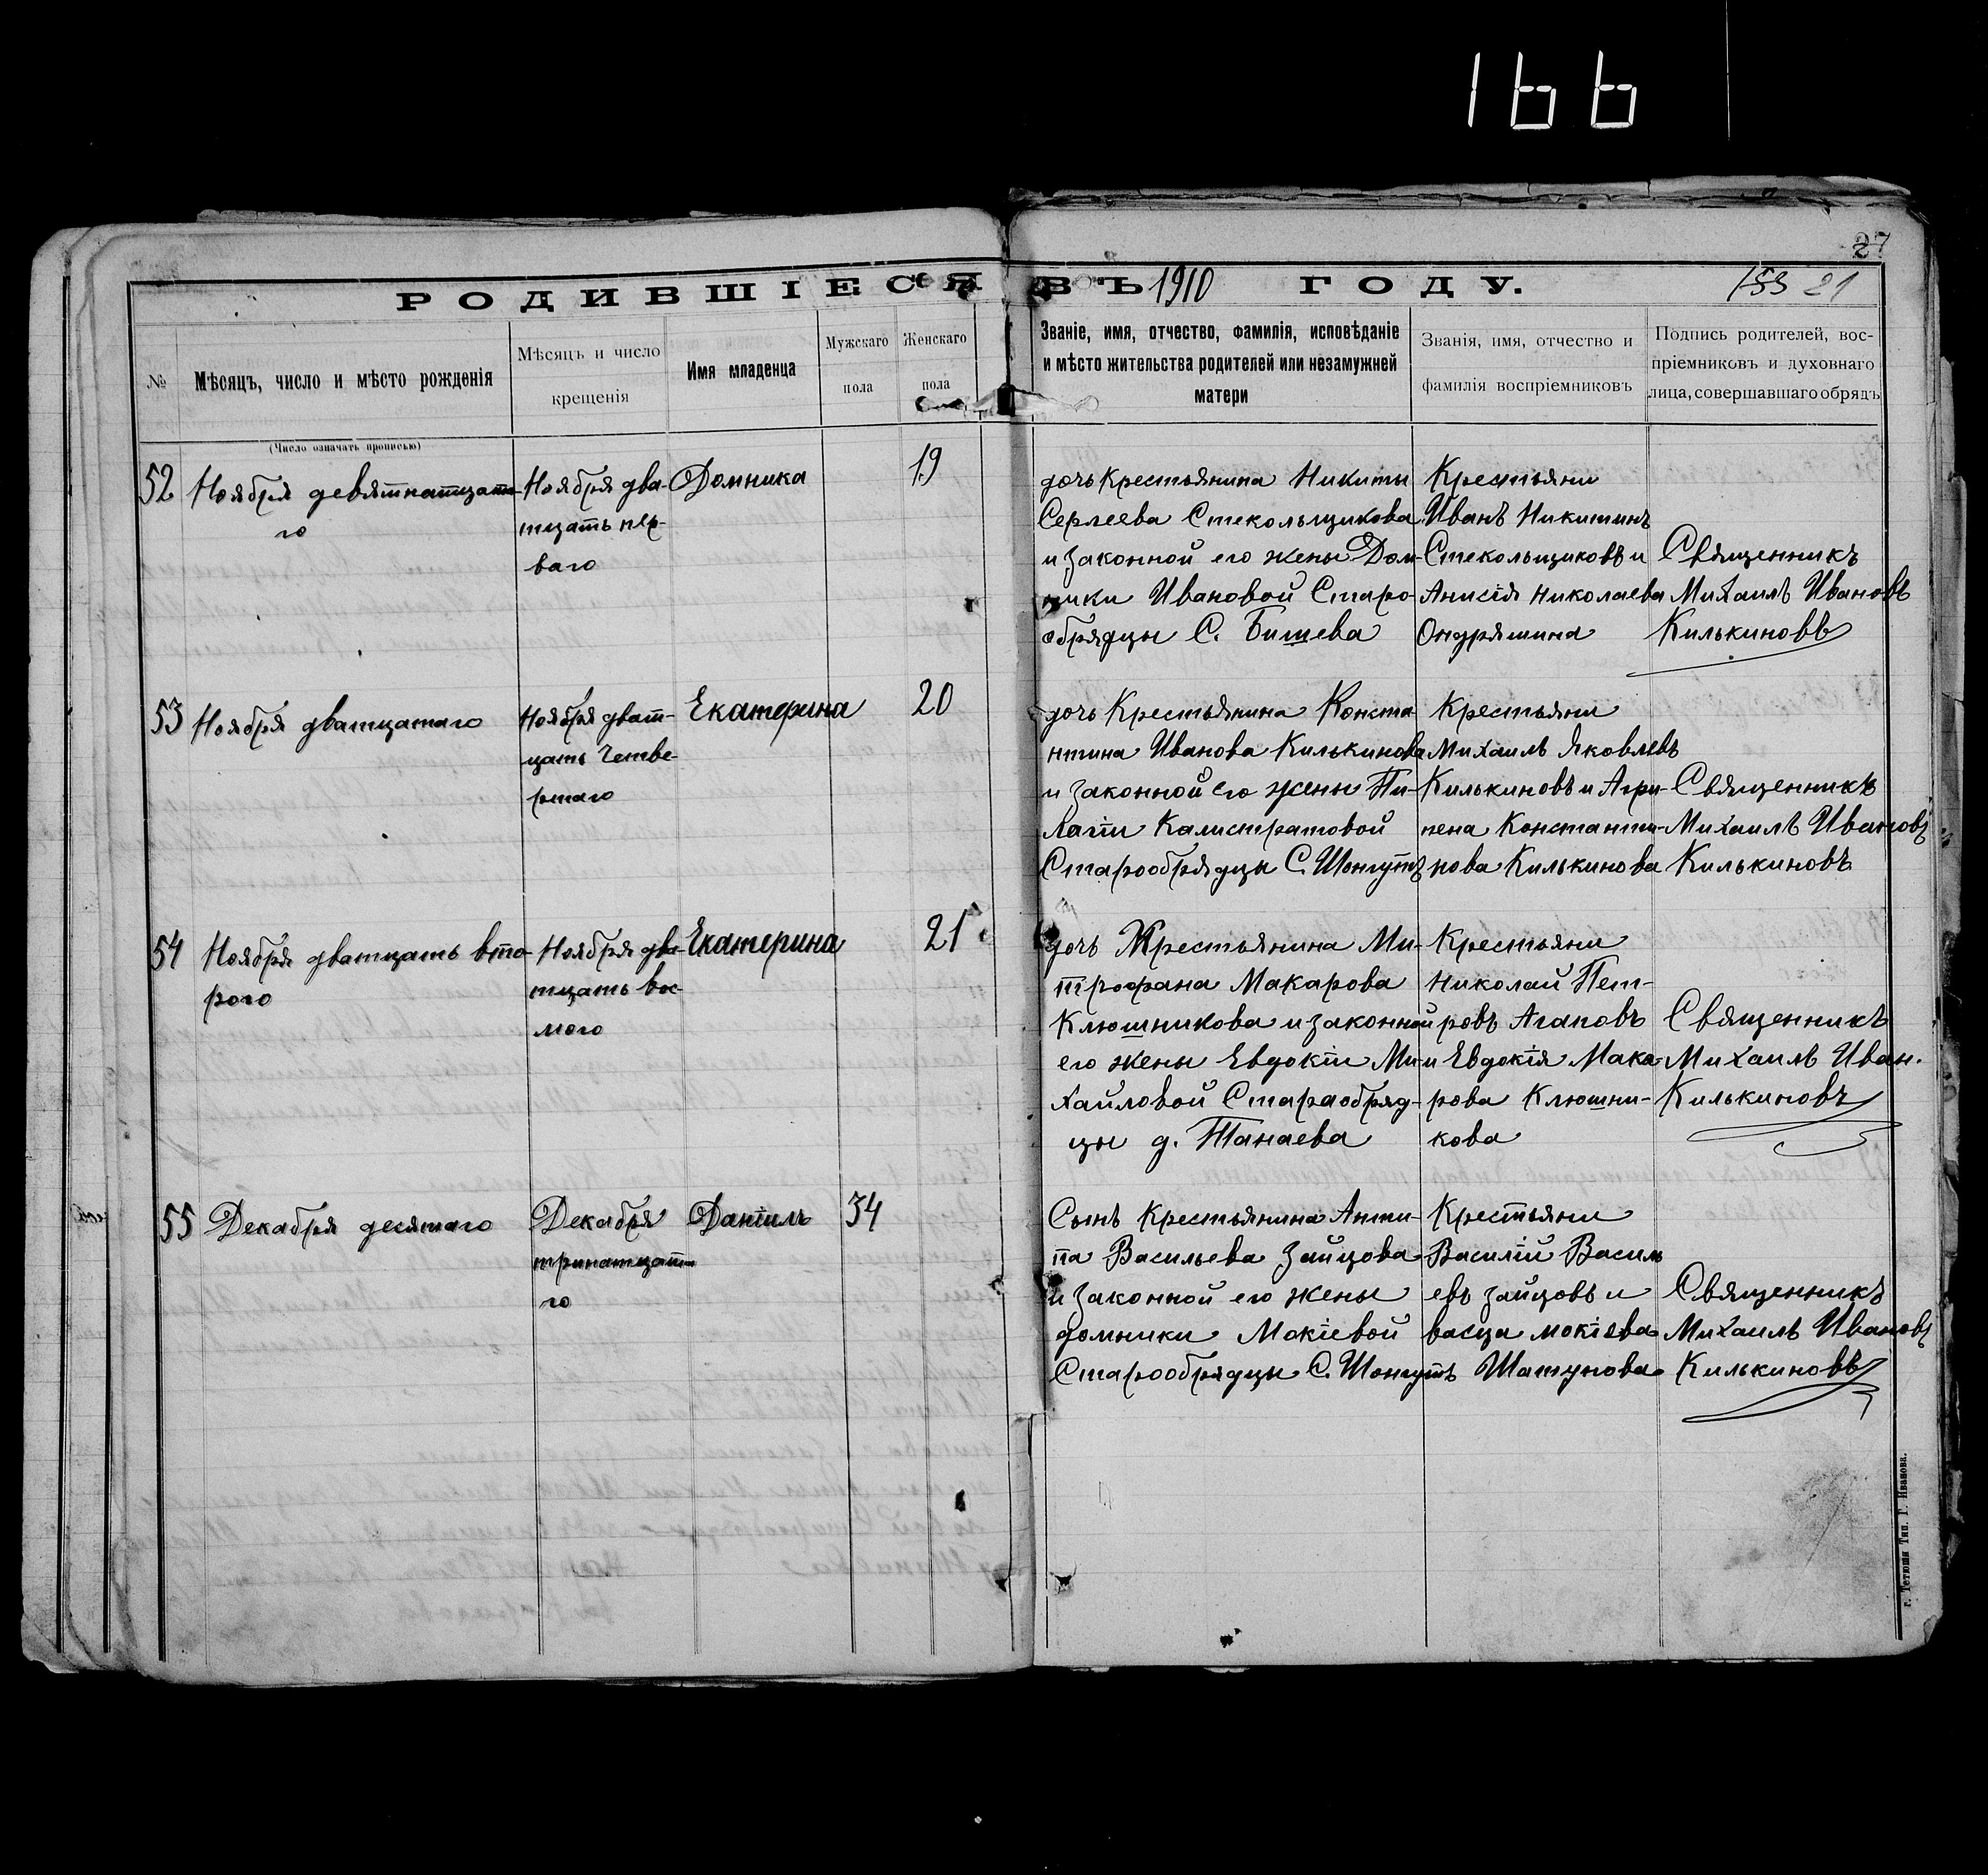 166
27
РОДИВШІЕСЯ ВЪ 1910 ГОДУ.
153 21
№
Мѣсяцъ, число и мѣсто рожденія
Мѣсяцъ и число
крещенія
Имя младенца
Мужскаго
пола
Женскаго
пола
Званіе, имя, отчество, фамилія, исповѣданіе
и мѣсто жительства родителей или незамужней
матери
Званія, имя, отчество и
фамилія воспріемниковъ
Подпись родителей, вос-
пріемниковъ и духовнаго
лица, совершавшаго обрядъ
(Число означать прописью)
52
Ноября девятнатцата-
го
Ноября два-
тцать пер-
ваго
Домника
19
дочь Крестьянина Никиты
Сергеева Стекольщикова
и законной его жены Дом-
ники Ивановой Старо-
обрядцы С. Бишева
Крестьяни
Иванъ Никитинъ
Стекольщиковъ и
Анисія Николаева
Ондряшина
Священникъ
Михаилъ Ивановъ
Килькиновъ
53
Ноября дватцатаго
Ноября дват-
цать Четве-
ртаго
Екатерина
20
дочь Крестьянина Конста
нтина Иванова Килькинова
и законной его жены Пи-
лагіи Калистратовой
Старообрядцы С. Шонгутъ
Крестьяни
Михаилъ Яковлевъ
Килькиновъ и Агри-
пена Константи-
нова Килькинова
Священникъ
Михаилъ Ивановъ
Килькиновъ
54
Ноября дватцать вто-
рого
Ноября два-
тцать вос-
мого
Екатерина
21
дочь Крестьянина Ми-
трофана Макарова
Клюшникова и законной
его жены Евдокіи Ми-
хайловой Стараобряд-
цы д. Танаева
Крестьяни
Николай Пет-
ровъ Агаповъ
и Евдокія Мака-
рова Клюшни-
кова
Священникъ
Михаилъ Иван.
Килькиновъ
55
Декабря десятаго
Декабря
тринатцата-
го
Даніилъ
34
Сынъ Крестьянина Анти-
па Васильева Зайцова
и законной его жены
домники Мокіевой
Старообрядцы С. Шонгутъ
Крестьяни
Василій Василь
евъ Зайцовъ и
васца мокіева
Шатунова
Священникъ
Михаилъ Ивановъ
Килькиновъ
г. Тетюши Тип. Г. Иванова.